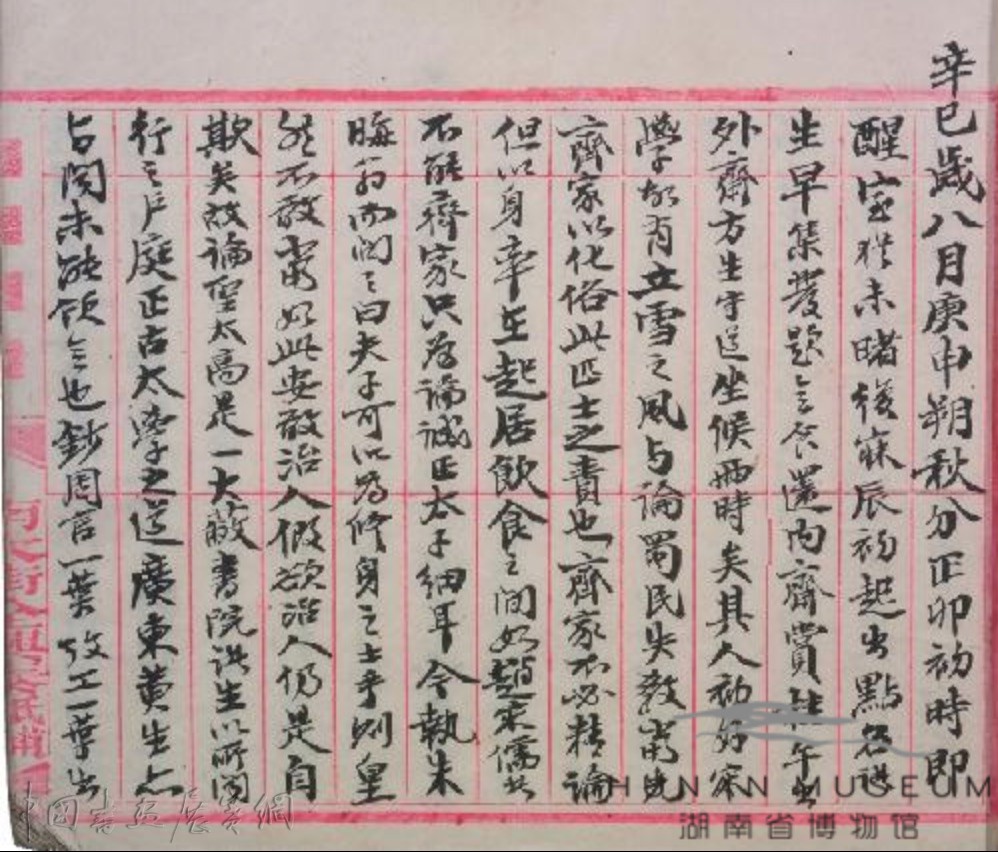 辛巳歲八月庚申朔秋分正卯初時即
醒室猶未曙後寐辰初起出點名諸
生早集發題令食還內齋賞桂午出
外齋方生守道坐候兩時矣其人初好宋
學故有立雪之風与論蜀民失教當先
齊家以化俗此匹士之責也齊家不必精論
但以身率在起居飲食之間如趙宋儒者
不能齊家只為論誠正太子細耳今執朱
晦翁而問之曰夫子可以為修身之士乎則皇
然不敢當如此安敢治人假欲治人仍是自
欺矣故論聖太高是一大蔽書院諸生以所聞
行之戶庭正古太學之道廣東黃生亦
与聞未能領会也鈔周官一葉攷工一葉出
HUNAN MUSEUM
湖南省博物馆
中國書法展賽網